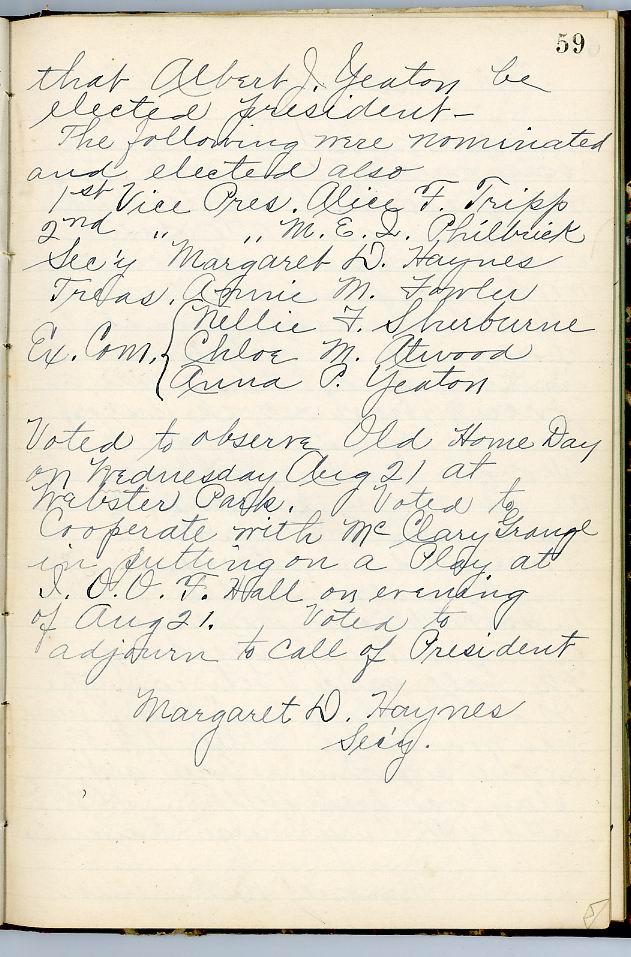 59
that Albert J. Yeaton be
elected president—
The following were nominated
and elected also
1st Vice Pres. Alice F. Tripp
2nd " " M. E. L. Philbrick
Sec'y Margaret D. Haynes
Treas. Annie M. Fowler
Nellie F. Sherburne
Ex. Com. { Chloe M. Atwood
Anna P. Yeaton
Voted to observe Old Home Day
on Wednesday Aug 21 at
Webster Park. Voted to
Cooperate with McClary Grange
in putting on a Play at
I. O. O. F. Hall on evening
of Aug 21. Voted to
adjourn to call of President
Margaret D. Haynes
Sec'y.